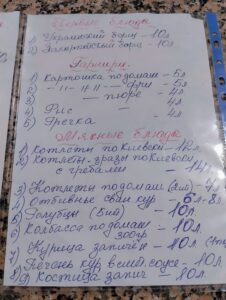 Первые блюда
1) Украинский борщ - 10л
2) Закарпатський борщ - 10л
Гарниры.
1) Картошка по домаш - 5л
2) - " - " - фри - 5л
3) - пюре - 4л
4) Рис - 4л
5) Гречка - 4л
Мясные блюда
1) Котлеты по Киевски - 12л
2) Котлеты-зразы по Киевски
с грибами - 14л
3) Котлеты по домаш
4) Отбивные свин кур - 6л - 8л
5) Голубцы (5шт) - 10л
6) Колбаса по домаш - 10л
300гр
7) Курица запечён - 10л
8) Печень кур в смет. соусе - 10л
9) Костица запеч - 10л.